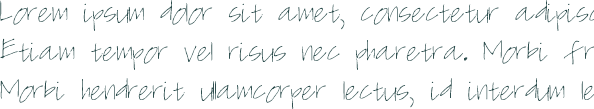 Lorem ipsum dolor sit amet, consectetur adipisc
Etiam tempor vel risus nec pharetra. Morbi fr
Morbi hendrerit ullamcorper lectus, id interdum le